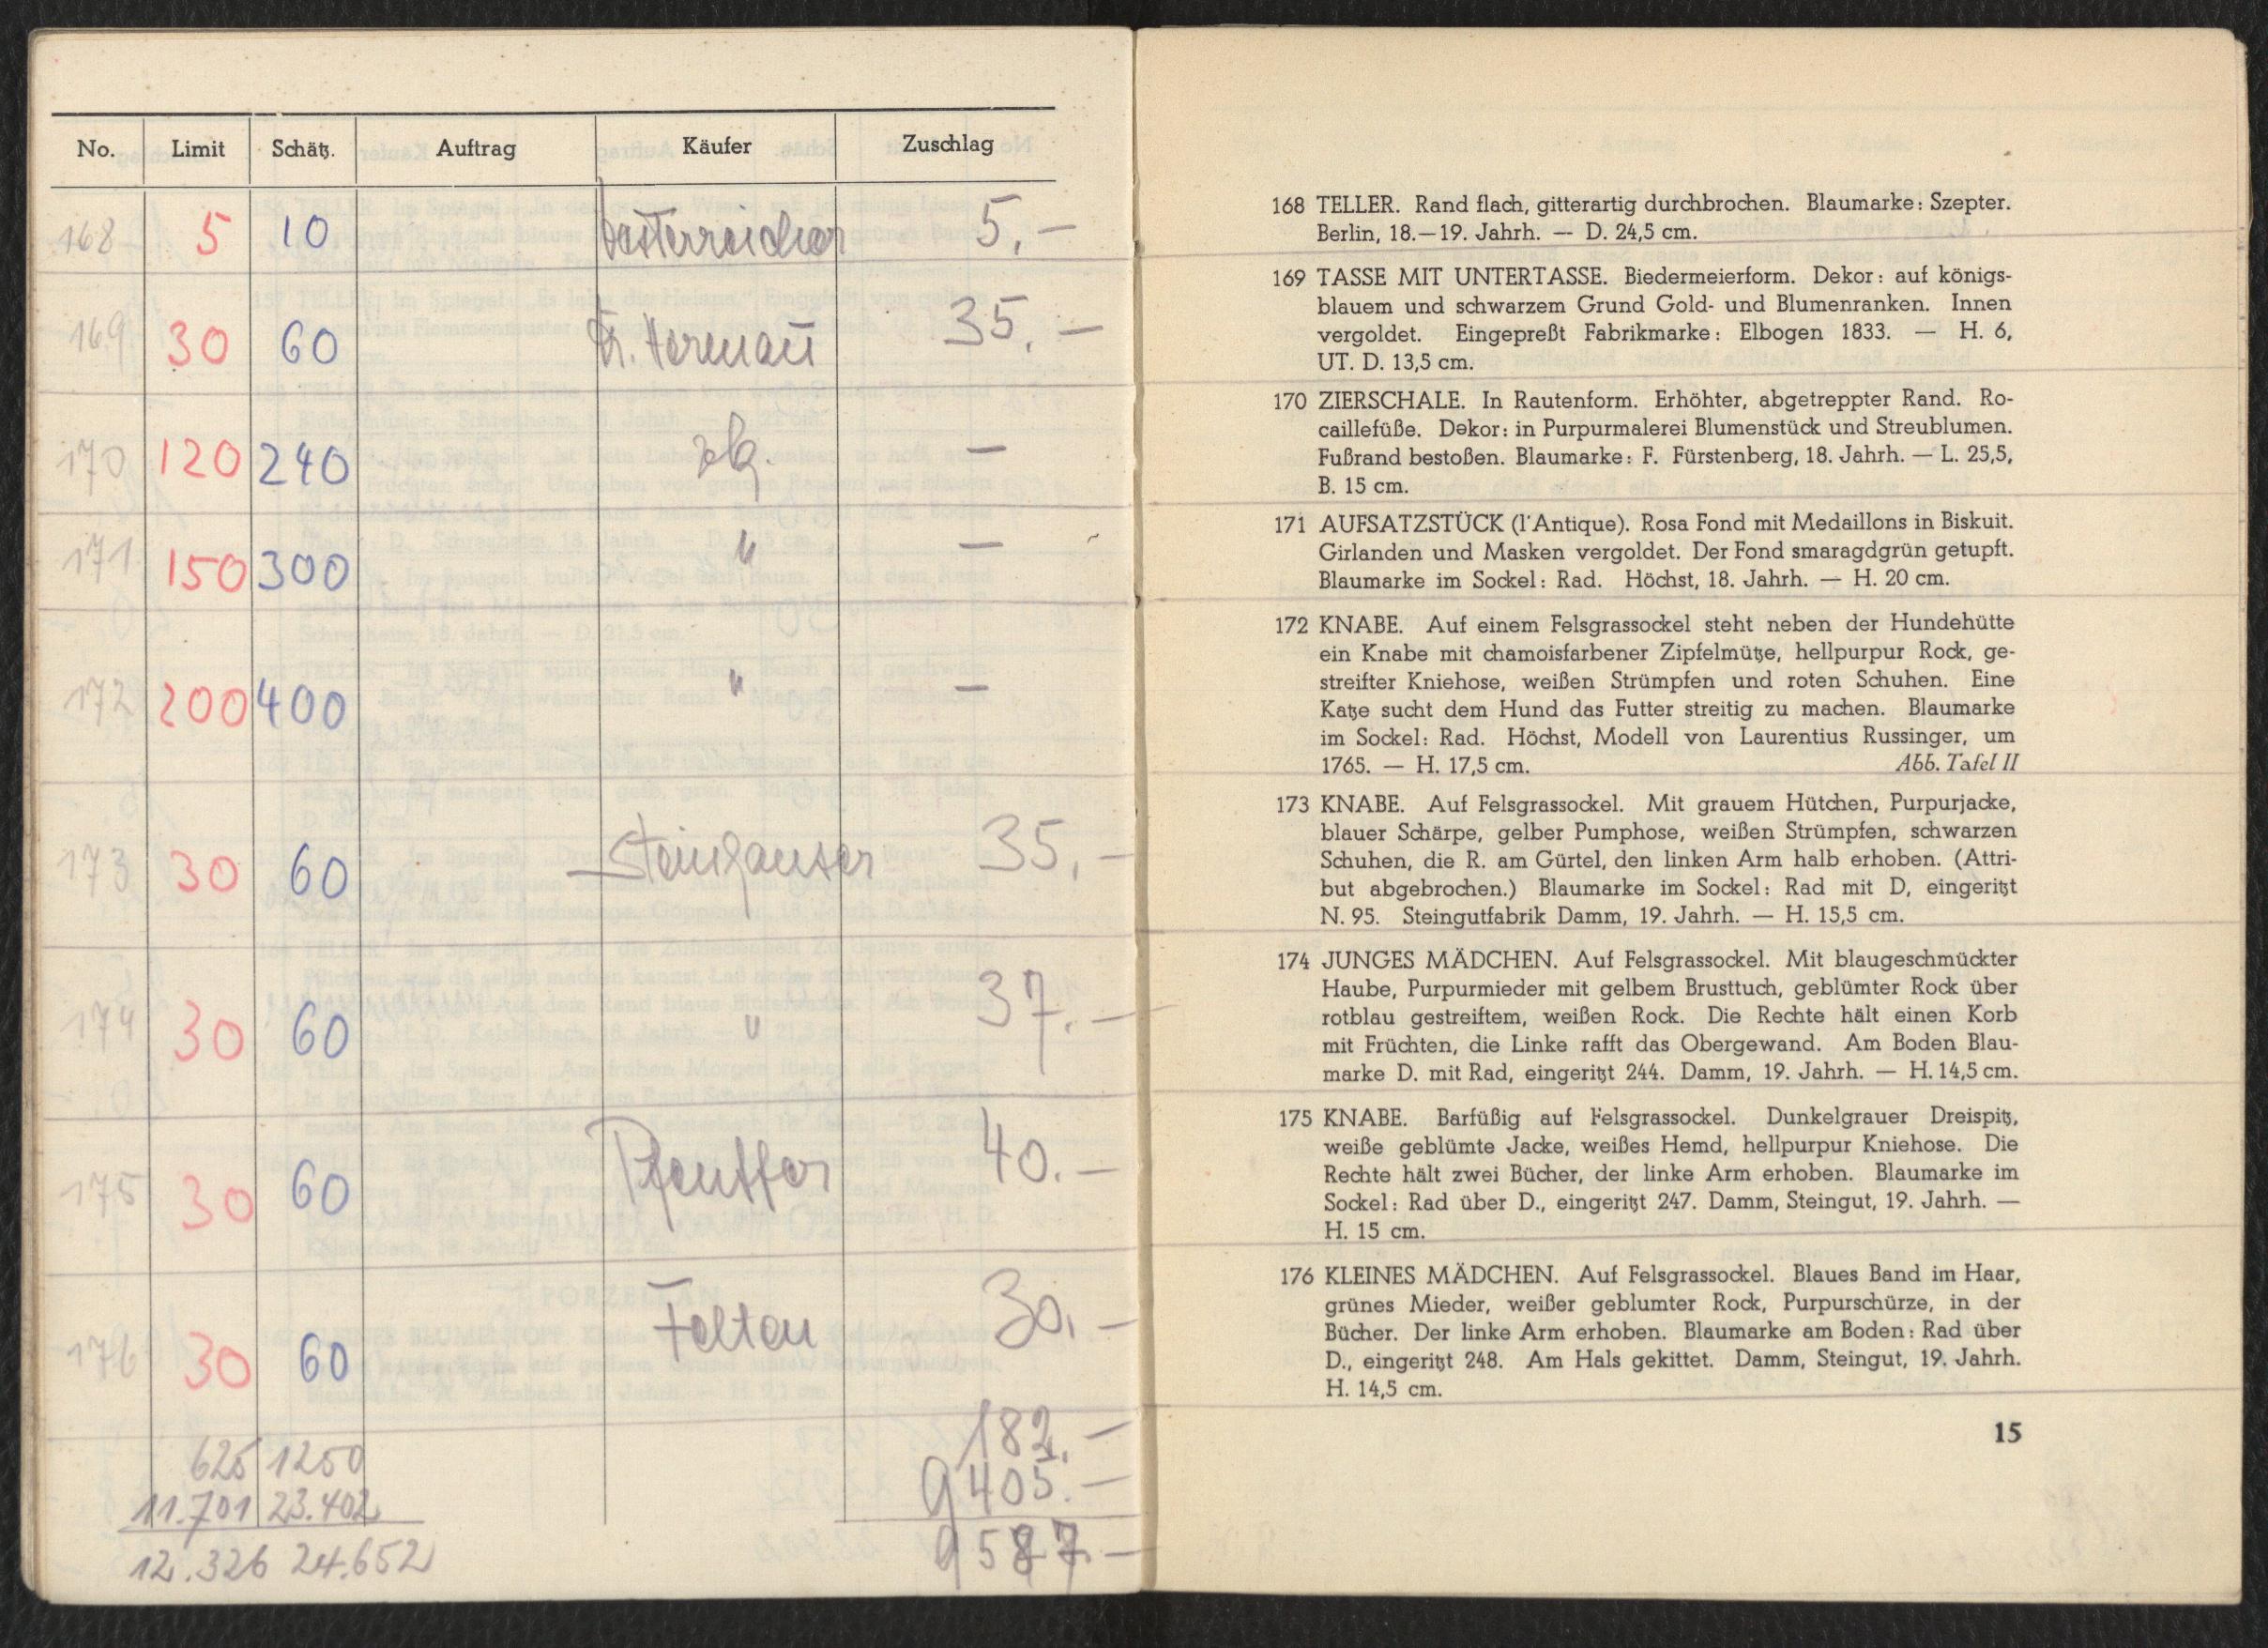 No. Limit Schätz. Auftrag Käufer Zuschlag
168 5 10 Oesterreicher 5.—
169 30 60 35.—
170 120 240 zk. —
171 150 300 " —
172 200 400 " —
173 30 60 Steinhauser 35.—
174 30 60 " 37.—
175 30 60 Pfeuffer 40.—
176 30 60 Felten 30.—
182.—
625 1250 9405.—
11.701 23.402
12.326 24.652 9587.—
168 TELLER. Rand flach, gitterartig durchbrochen. Blaumarke: Szepter.
Berlin, 18.—19. Jahrh. — D. 24,5 cm.
169 TASSE MIT UNTERTASSE. Biedermeierform. Dekor: auf königs-
blauem und schwarzem Grund Gold- und Blumenranken. Innen
vergoldet. Eingepreßt Fabrikmarke: Elbogen 1833. — H. 6,
UT. D. 13,5 cm.
170 ZIERSCHALE. In Rautenform. Erhöhter, abgetreppter Rand. Ro-
caillefüße. Dekor: in Purpurmalerei Blumenstück und Streublumen.
Fußrand bestoßen. Blaumarke: F. Fürstenberg, 18. Jahrh. — L. 25,5,
B. 15 cm.
171 AUFSATZSTÜCK (l'Antique). Rosa Fond mit Medaillons in Biskuit.
Girlanden und Masken vergoldet. Der Fond smaragdgrün getupft.
Blaumarke im Sockel: Rad. Höchst, 18. Jahrh. — H. 20 cm.
172 KNABE. Auf einem Felsgrassockel steht neben der Hundehütte
ein Knabe mit chamoisfarbener Zipfelmütze, hellpurpur Rock, ge-
streifter Kniehose, weißen Strümpfen und roten Schuhen. Eine
Katze sucht dem Hund das Futter streitig zu machen. Blaumarke
im Sockel: Rad. Höchst, Modell von Laurentius Russinger, um
1765. — H. 17,5 cm. Abb. Tafel II
173 KNABE. Auf Felsgrassockel. Mit grauem Hütchen, Purpurjacke,
blauer Schärpe, gelber Pumphose, weißen Strümpfen, schwarzen
Schuhen, die R. am Gürtel, den linken Arm halb erhoben. (Attri-
but abgebrochen.) Blaumarke im Sockel: Rad mit D, eingeritzt
N. 95. Steingutfabrik Damm, 19. Jahrh. — H. 15,5 cm.
174 JUNGES MÄDCHEN. Auf Felsgrassockel. Mit blaugeschmückter
Haube, Purpurmieder mit gelbem Brusttuch, geblümter Rock über
rotblau gestreiftem, weißen Rock. Die Rechte hält einen Korb
mit Früchten, die Linke rafft das Obergewand. Am Boden Blau-
marke D. mit Rad, eingeritzt 244. Damm, 19. Jahrh. — H. 14,5 cm.
175 KNABE. Barfüßig auf Felsgrassockel. Dunkelgrauer Dreispitz,
weiße geblümte Jacke, weißes Hemd, hellpurpur Kniehose. Die
Rechte hält zwei Bücher, der linke Arm erhoben. Blaumarke im
Sockel: Rad über D., eingeritzt 247. Damm, Steingut, 19. Jahrh. —
H. 15 cm.
176 KLEINES MÄDCHEN. Auf Felsgrassockel. Blaues Band im Haar,
grünes Mieder, weißer geblumter Rock, Purpurschürze, in der
Bücher. Der linke Arm erhoben. Blaumarke am Boden: Rad über
D., eingeritzt 248. Am Hals gekittet. Damm, Steingut, 19. Jahrh.
H. 14,5 cm.
15